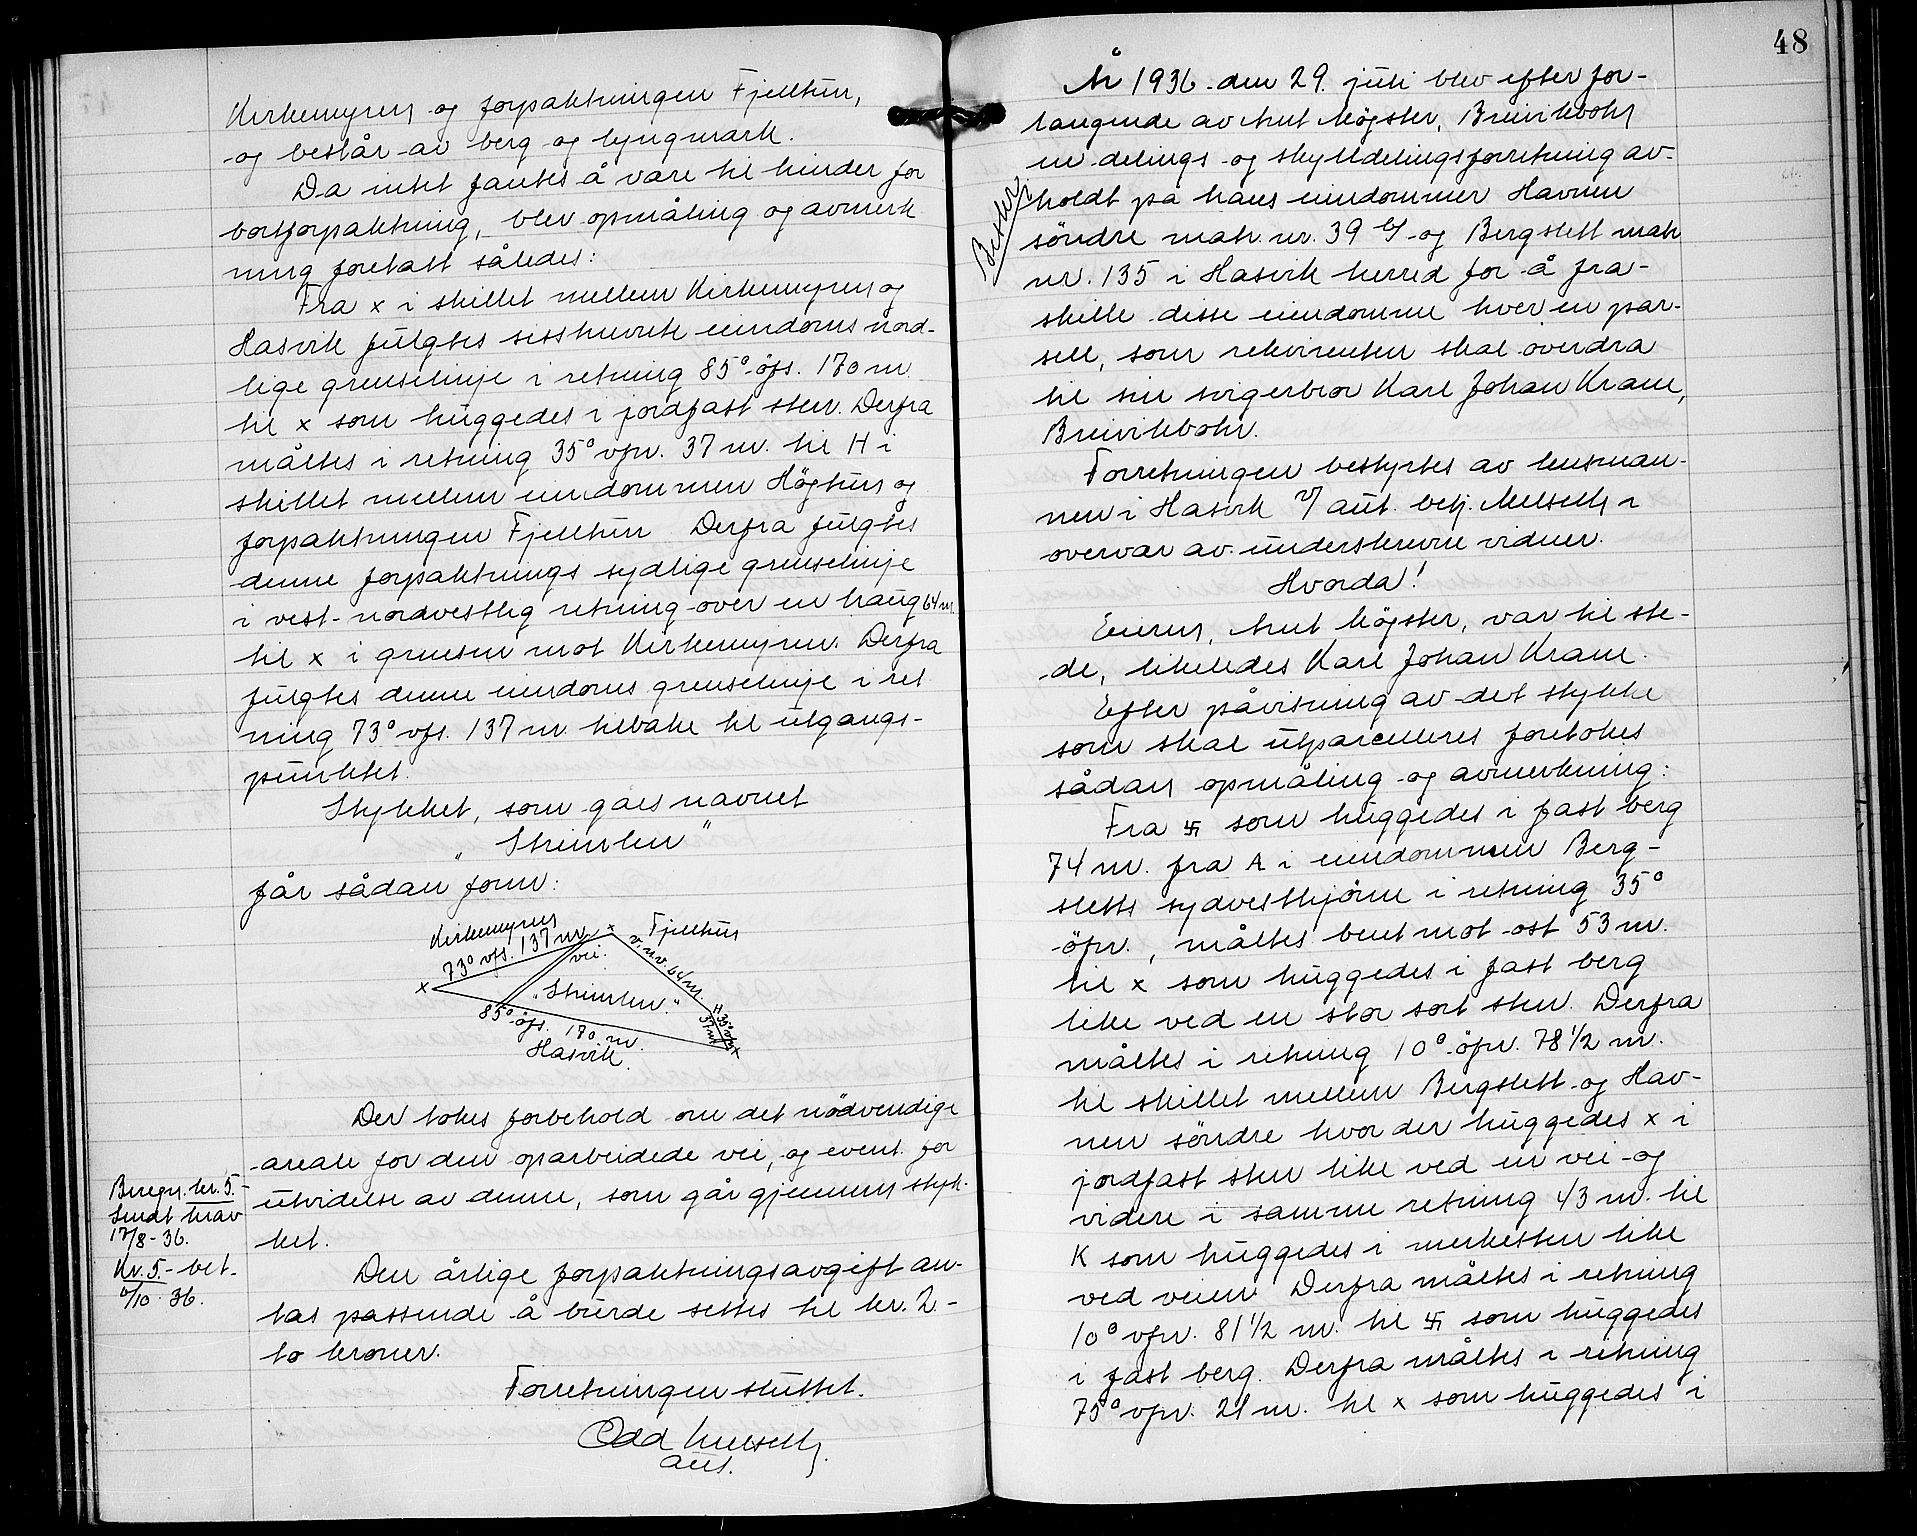 Kirkemyren og forpaktningen Fjelltun,
og består av berg og lyngmark.
Da intet fantes å være til hinder for
bortforpaktning, blev opmåling og avmerk
ning foretatt således:
Fra x i skillet mellem Kirkemyren og
Hasvik fulgtes sistnevnte eiendoms nord-
lige grenselinje i retning 85° öfs. 170 m
til x som huggedes i jordfast sten. Derfra
måltes i retning 35° vfn. 37 m. til H i
skillet mellem eiendommen Högtun og
forpaktningen Fjelltun Derfra fulgtes
denne forpaktnings sydlige grenselinje
i vest-nordvestlig retning over en haug 64 m.
til x i grensen mot Kirkemyren. Derfra
fulgtes denne eiendoms grenselinje i ret
ning 73° vfs. 137 m tilbake til utgangs-
punktet.
Stykket, som gaes navnet
"
får sådan form:
Kirkemyren
73° vfs. 137 m
x
Fjelltun
v.n.v. 64 m.
vei.
x
85° öfs. 170 m.
H 35° vfn
37 m
x
Hasvik.
Der tokes forbehold om det nödvendige
areale for den oparbeidede vei, og event. for
utvidelse av denne, som går gjennem styk-
ket.
Beregn. kr. 5.-
Sendt krav
17/8-36.
Kr. 5.- bet.
6/10-36.
Den årlige forpaktningsavgift an-
tas passende å burde settes til kr. 2-
to kroner.
Forretningen sluttet.
Odd
aut.
48
År 1936 den 29. juli blev efter for-
langende av Mögster, Breivikbotn
en delings- og skylddelingsforretning av-
holdt på hans eiendommer Havnen
söndre matr. nr. 39 og Bergslett matr
nr. 135 i Hasvik herred for å fra-
skille disse eiendomme hver en par-
sell, som rekvirenten skal overdra
til sin svigerbror Karl Johan Krane,
Breivikbotn.
Forretningen bestyrtes av lensman-
nen i Hasvik v/ aut. betj. i
overvær av underskrevne vidner.
Hvorda!
Eieren, Mögster, var til ste-
de, likeledes Karl Johan Krane.
Efter påvisning av det stykke
som skal utparcelleres foretokes
sådan opmåling og avmerkning:
Fra 卐 som huggedes i fast berg
74 m. fra A i eiendommen Berg-
sletts sydvesthjörne i retning 35°
öfn., måltes bent mot ost 53 m.
til x som huggedes i fast berg
like ved en stor sort sten. Derfra
måltes i retning 10° öfn. 78 1/2 m.
til skillet mellem Bergslett og Hav-
nen söndre hvor der huggedes x i
jordfast sten like ved en vei og
videre i samme retning 43 m. til
K som huggedes i merkesten like
ved veien Derfra måltes i retning
10° vfn. 81 1/2 m. til 卐 som huggedes
i fast berg. Derfra måltes i retning
75° vfn. 21 m. til x som huggedes i